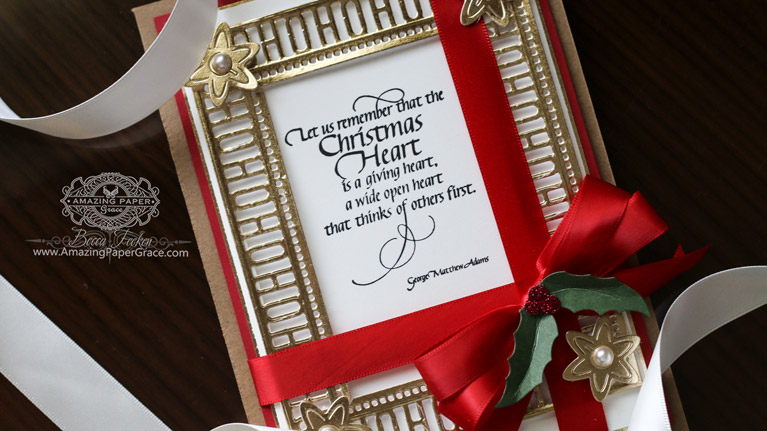 HOHOHOHO
Let us remember that the
Christmas
Heart
is a giving heart,
a wide open heart
that thinks of others first.
George Matthew Adams
AMAZING PAPER
Grace
Becca Feeken
www.AmazingPaperGrace.com